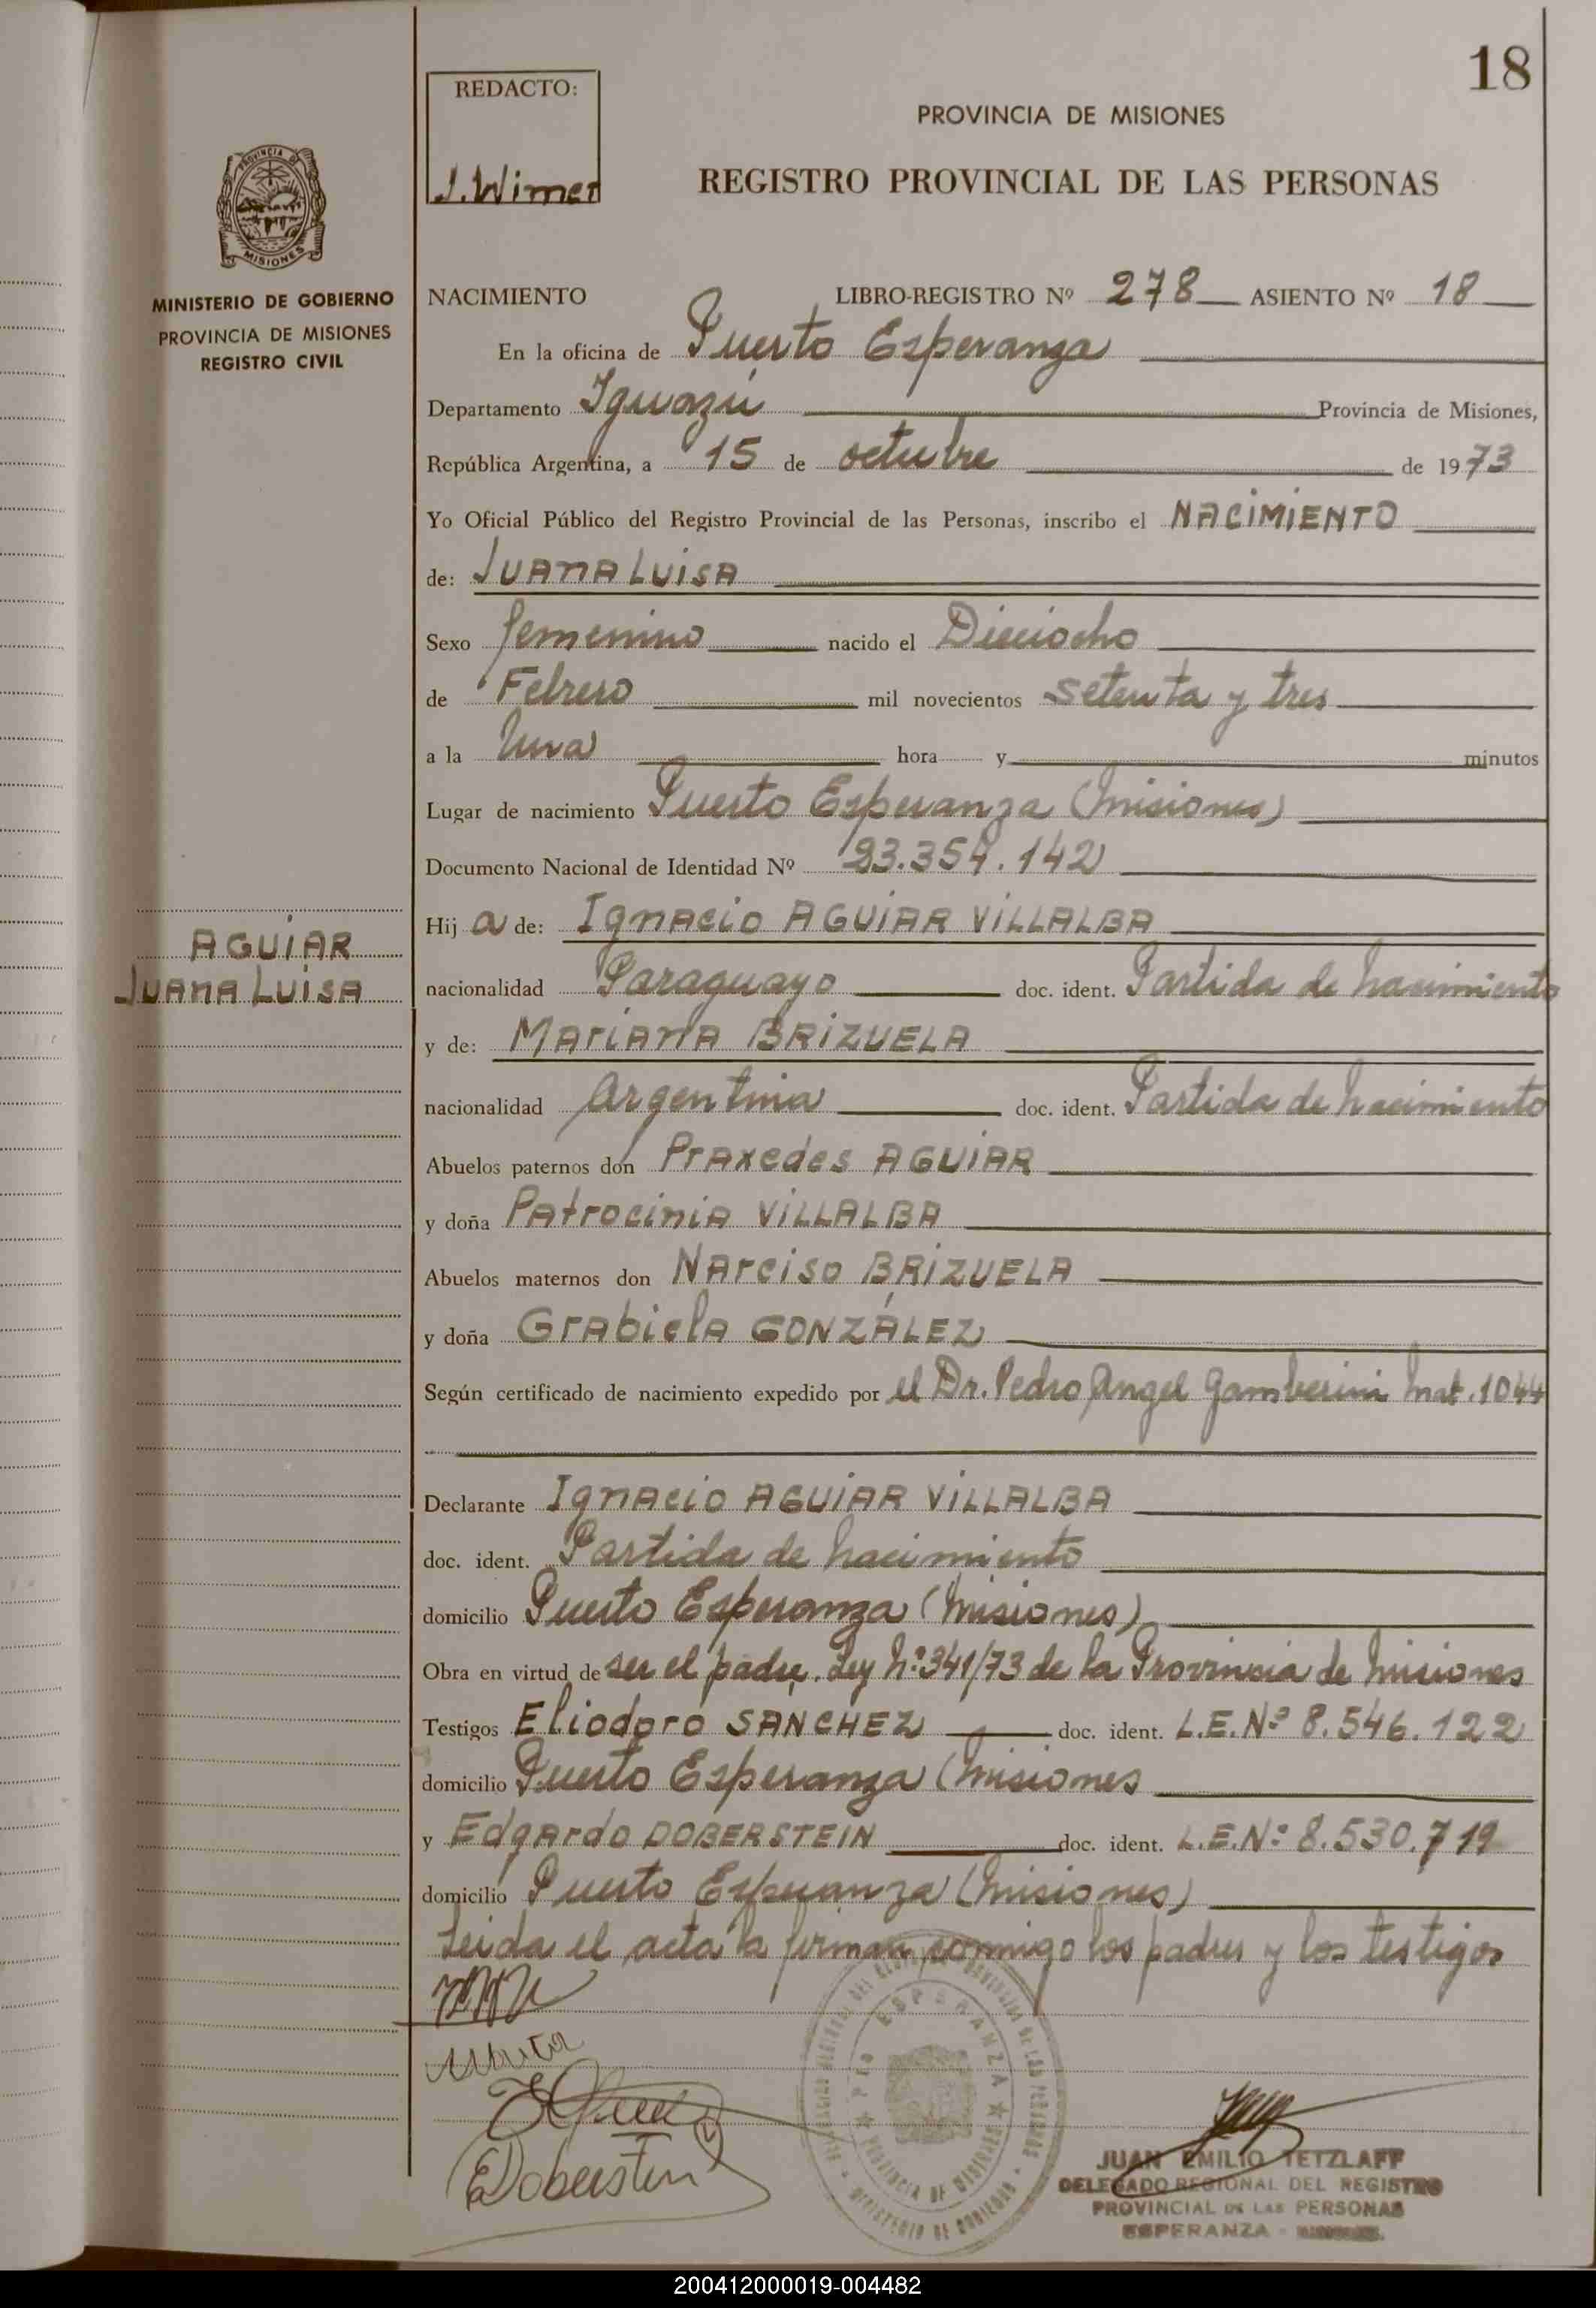 18
REDACTO:
J. Wimer
PROVINCIA DE MISIONES
REGISTRO PROVINCIAL DE LAS PERSONAS
PROVINCIA DE
MISIONES
MINISTERIO DE GOBIERNO
PROVINCIA DE MISIONES
REGISTRO CIVIL
NACIMIENTO LIBRO-REGISTRO Nº 278 ASIENTO Nº 18
En la oficina de Puerto Esperanza
Departamento Iguazú Provincia de Misiones,
República Argentina, a 15 de octubre de 1973
Yo Oficial Público del Registro Provincial de las Personas, inscribo el NACIMIENTO
de: JUANA LUISA
Sexo femenino nacido el Dieciocho
de Febrero mil novecientos setenta y tres
a la Una hora y minutos
Lugar de nacimiento Puerto Esperanza (Misiones)
Documento Nacional de Identidad Nº 23.354.142
Hij a de: Ignacio AGUIAR VILLALBA
AGUIAR
JUANA LUISA
nacionalidad Paraguayo doc. ident. Partida de nacimiento
y de: MARIANA BRIZUELA
nacionalidad Argentina doc. ident. Partida de nacimiento
Abuelos paternos don Praxedes AGUIAR
y doña Patrocinia VILLALBA
Abuelos maternos don Narciso BRIZUELA
y doña Grabiela GONZÁLEZ
Según certificado de nacimiento expedido por el Dr. Pedro Angel Gamberini Mat. 1044
Declarante Ignacio AGUIAR VILLALBA
doc. ident. Partida de nacimiento
domicilio Puerto Esperanza (Misiones)
Obra en virtud de ser el padre. Ley Nº 341/73 de la Provincia de Misiones
Testigos Eliodoro SANCHEZ doc. ident. L.E.Nº 8.546.122
domicilio Puerto Esperanza (Misiones
y Edgardo DOBERSTEIN doc. ident. L.E.Nº 8.530.719
domicilio Puerto Esperanza (Misiones)
Leida el acta la firman conmigo los padres y los testigos
EDoberstein
PTO ESPERANZA
PROVINCIA DE MISIONES
MINISTERIO DE GOBIERNO
JUAN EMILIO TETZLAFF
DELEGADO REGIONAL DEL REGISTRO
PROVINCIAL DE LAS PERSONAS
ESPERANZA - MISIONES
200412000019-004482